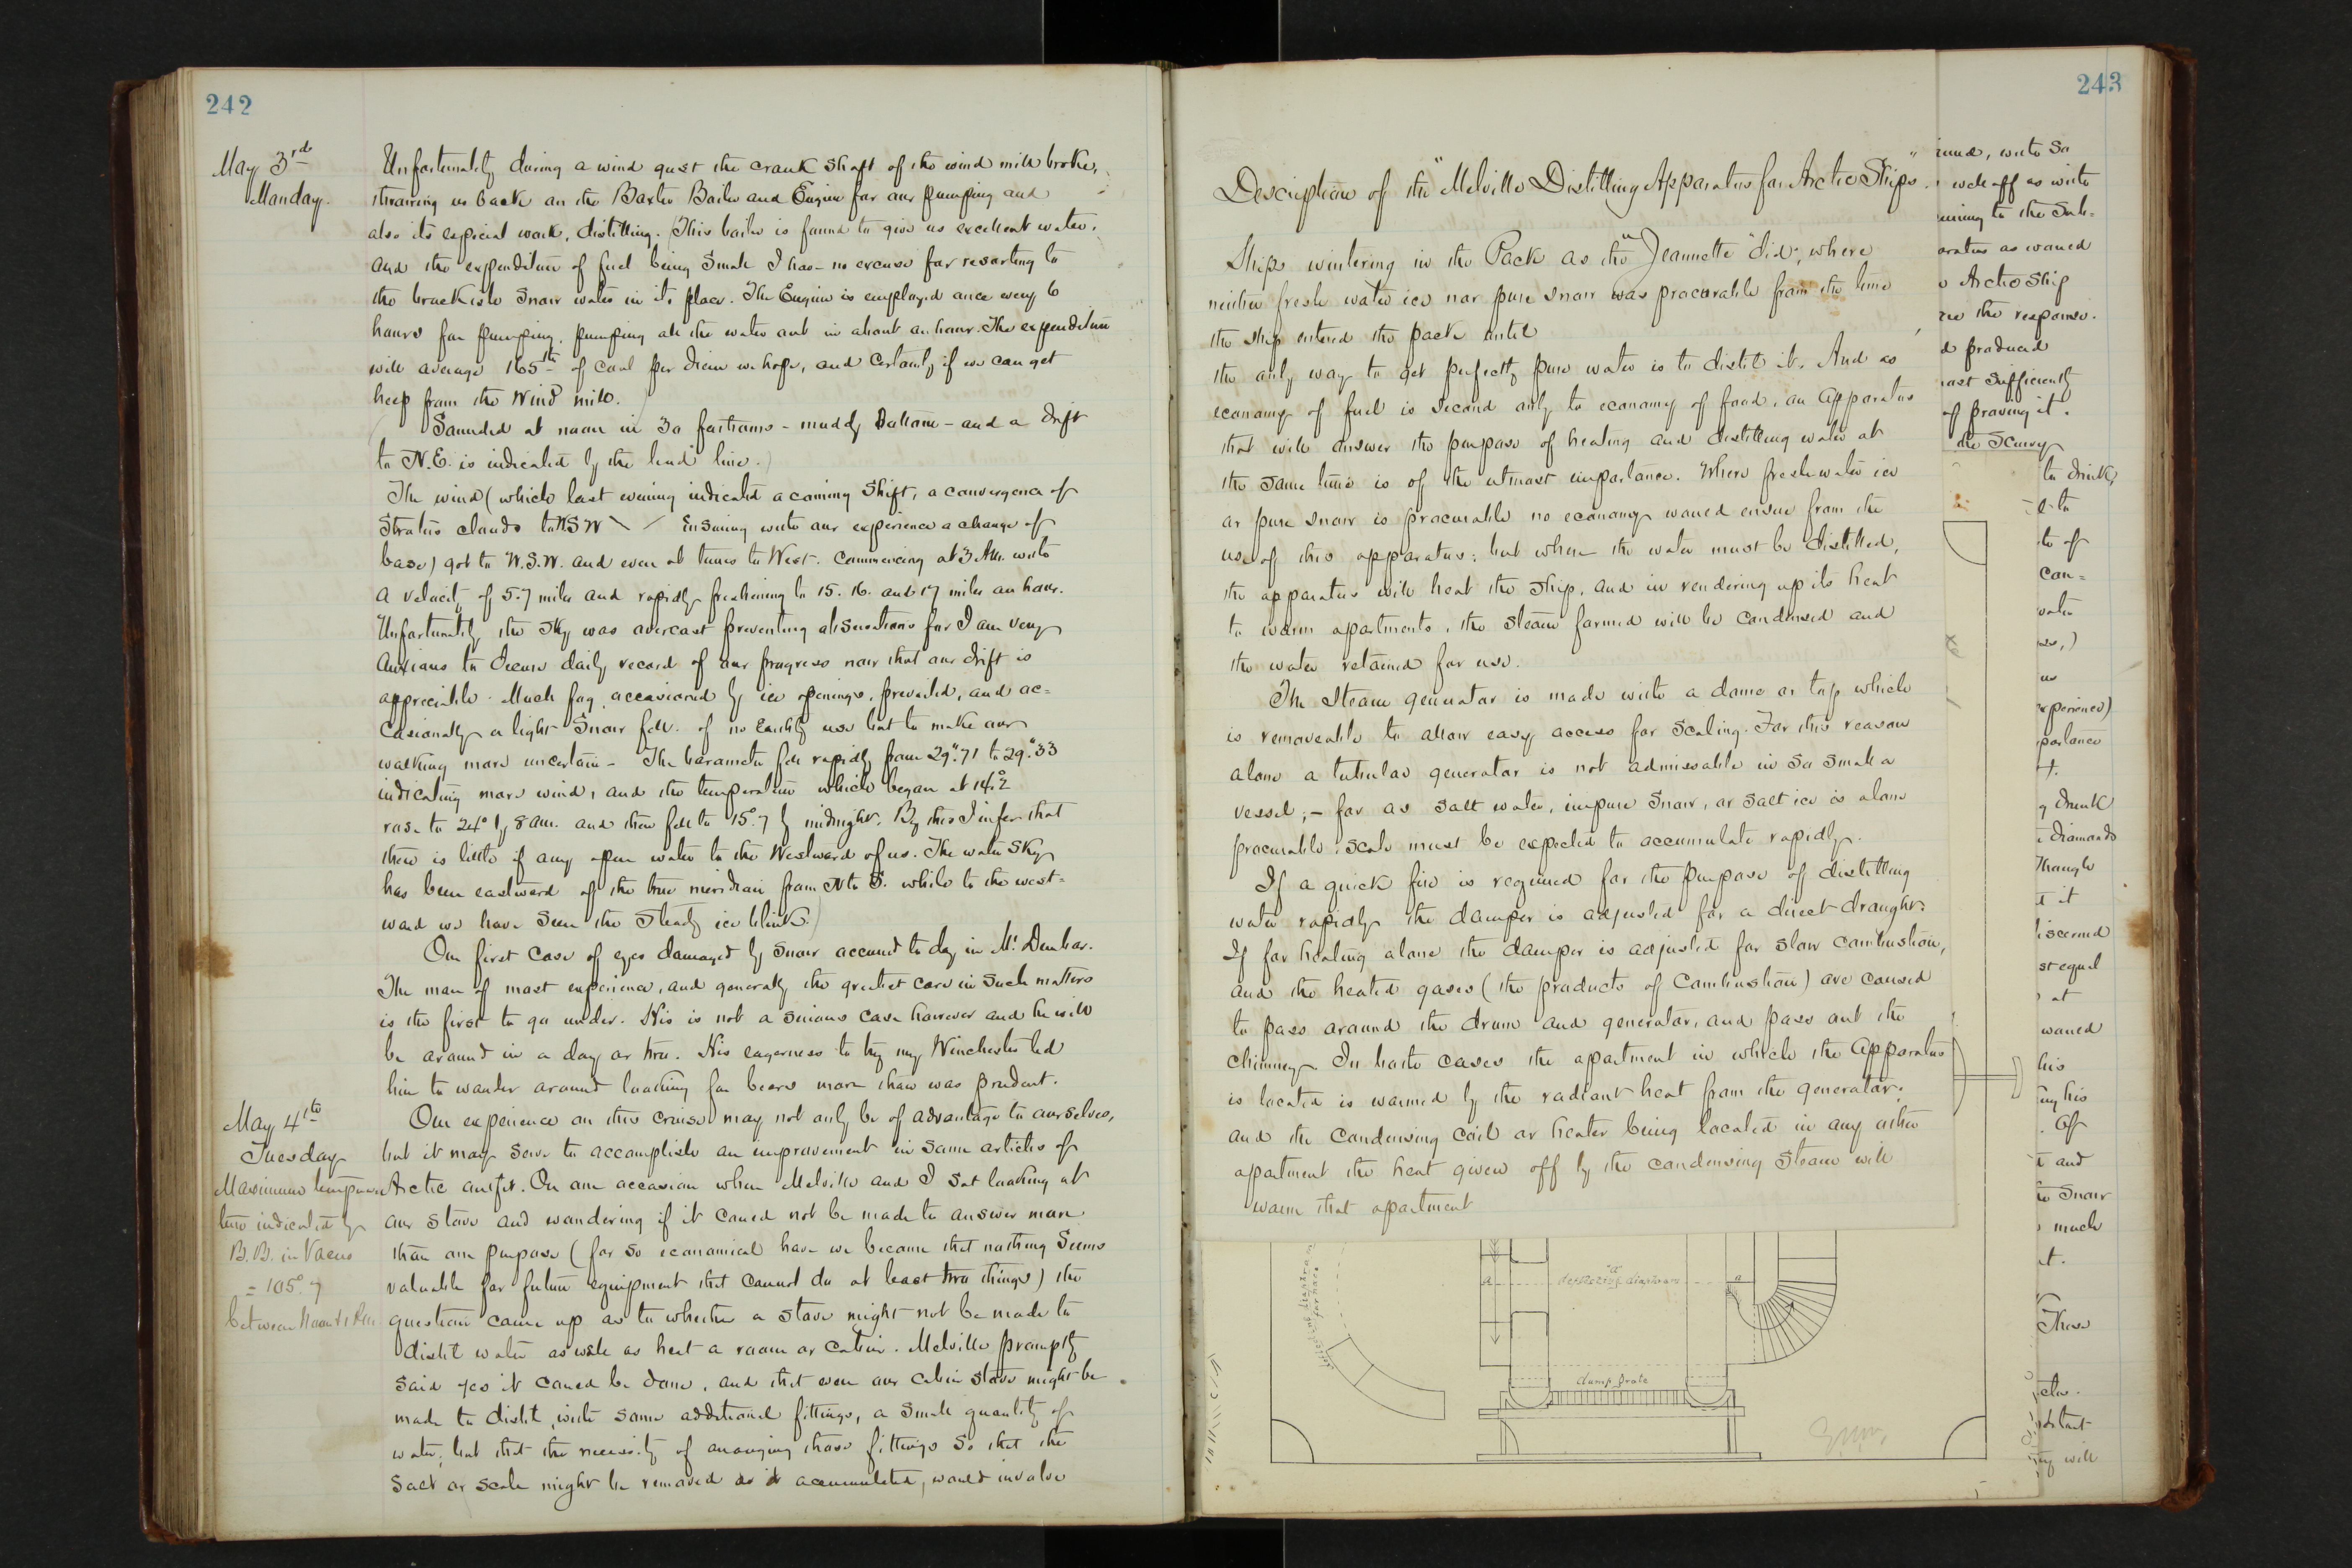 242
May 3rd
Monday.
Unfortunately during a wind gust the crank shaft of the wind mill broke,
throwing us back on the Baxter Boiler and Engine for our pumping and
also its especial work, distilling. (This boiler is found to give us excellent water,
and the expenditure of fuel being small I have no excuse for resorting to
the brackish snow water in its place. The Engine is employed once every 6
hours for pumping, pumping all the water out in about an hour. The expenditure
will average 165 of coal per diem we hope, and certainly if we can get
help from the Wind mill.
Sounded at noon in 30 fathoms - muddy bottom - and a drift
to N.E. is indicated by the lead line.)
The wind (which last evening indicated a coming shift, a convergence of
Stratus clouds to WSW \ / Ensuring with our experience a change of
base) got to W.S.W. and even at times to West. Commencing at 3 A.M. with
a velocity of 5.7 miles and rapidly freshening to 15. 16. and 17 miles an hour.
Unfortunately the sky was overcast preventing observations for I am very
anxious to secure daily record of our progress now that our drift is
appreciable. Much fog, occasioned by ice openings, prevailed, and oc=
casionally a light snow fell. of no earthly use but to make our
walking more uncertain - The barometer fell rapidly from 29".71 to 29".33
indicating more wind, and the temperature which began at 14°.2
rose to 24° by 8 am. and then fell to 15°.7 by midnight. By this I infer that
there is little if any open water to the Westward of us. The water sky
has been eastward of the true meridian from N to S. while to the west=
ward we have seen the steady ice blink.)
Our first case of eyes damaged by snow occurred to day in Mr Dunbar.
The man of most experience, and generally the greatest care in such matters
is the first to go under. His is not a serious case however and he will
be around in a day or two. His eagerness to try my Winchester led
him to wander around looking for bears more than was prudent.
May 4th
Tuesday
Maximum tempera
ture indicated by
B.B. in Vacuo
= 105°.7
between Noon & 1 P.M.
Our experience on this cruise may not only be of advantage to ourselves,
but it may serve to accomplish an improvement in some articles of
Arctic outfit. On one occasion when Melville and I sat looking at
our stove and wondering if it could not be made to answer more
than one purpose (for so economical have we become that nothing seems
valuable for future equipment that cannot do at least two things) the
question came up as to whether a stove might not be made to
distil water as well as heat a room or cabin. Melville promptly
said yes it could be done, and that even our cabin stove might be
made to distil, with some additional fittings, a small quantity of
water; but that the necessity of arranging these fittings so that the
salt or scale might be removed as it accumulated, would involve
243
Description of the "Melville Distilling Apparatus for Arctic Ships".
Ships wintering in the Pack as the "Jeannette" did; where
neither fresh water ice nor pure snow was procurable from the time
the ship entered the pack until
the only way to get perfectly pure water is to distil it. And as
economy of fuel is second only to economy of food, an apparatus
that will answer the purpose of heating and distilling water at
the same time is of the utmost importance. Where fresh water ice
or pure snow is procurable no economy would ensue from the
use of this apparatus; but where the water must be distilled,
the apparatus will heat the ship, and in rendering up its heat
to warm apartments, the steam formed will be condensed and
the water retained for use.
The Steam generator is made with a dome or top which
is removeable to allow easy access for scaling. For this reason
alone a tubular generator is not admissable in so small a
vessel; - for as salt water, impure snow, or salt ice is alone
procurable, scale must be expected to accumulate rapidly.
If a quick fire is required for the purpose of distilling
water rapidly the damper is adjusted for a direct draught.
If for heating alone the damper is adjusted for slow combustion,
and the heated gases (the products of Combustion) are caused
to pass around the drum and generator, and pass out the
chimney. In both cases the apartment in which the apparatus
is located is warmed by the radiant heat from the generator;
and the condensing coil or heater being located in any other
apartment the heat given off by the condensing steam will
warm that apartment
with so
well off as with
to the sub=
as would
Arctic Ship
the response.
produced
sufficiently
of proving it.
the scurvy
to drink,
to
to of
can=
water
us
experience)
drink
diamonds
though
it
discerned
st equal
at
would
his
his
Of
and
Snow
much
it.
These
will
a
"a"
deflecting diaphragm
a
dump grate